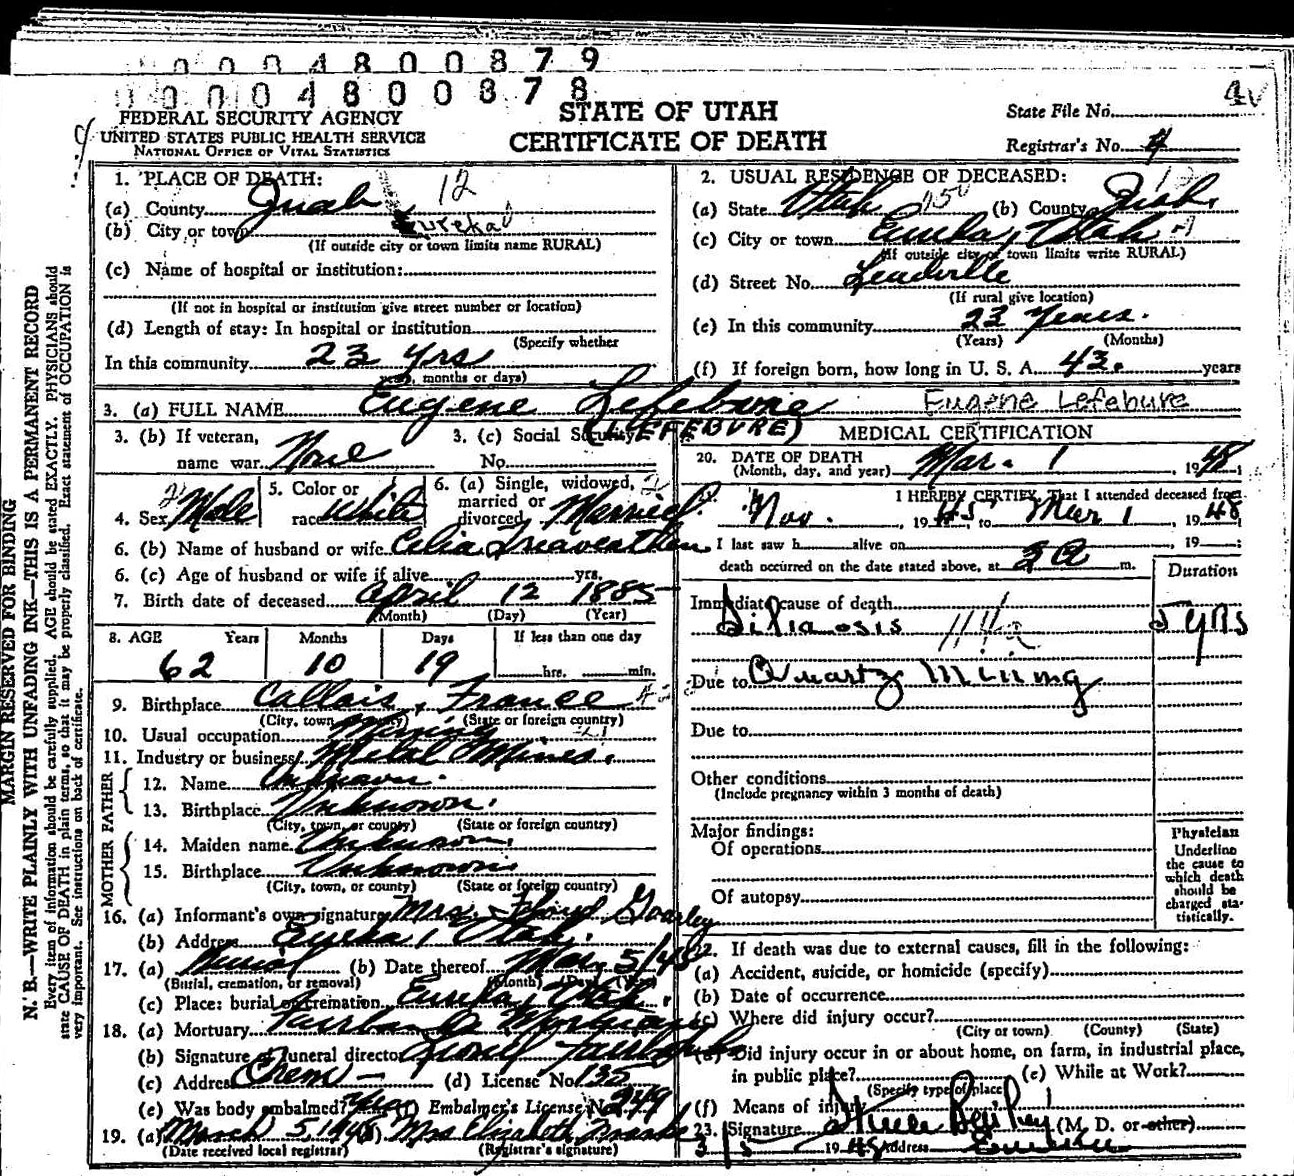 0004800879
0004800878
FEDERAL SECURITY AGENCY
UNITED STATES PUBLIC HEALTH SERVICE
NATIONAL OFFICE OF VITAL STATISTICS
STATE OF UTAH
CERTIFICATE OF DEATH
State File No.
Registrar's No. 4
MARGIN RESERVED FOR BINDING
N. B.—WRITE PLAINLY WITH UNFADING INK—THIS IS A PERMANENT RECORD
Every item of information should be carefully supplied. AGE should be stated EXACTLY. PHYSICIANS should
state CAUSE OF DEATH in plain terms, so that it may be properly classified. Exact statement of OCCUPATION is
very important. See instructions on back of certificate.
1. PLACE OF DEATH: 12
(a) County Juab
(b) City or town Eureka
(If outside city or town limits name RURAL)
(c) Name of hospital or institution:
(If not in hospital or institution give street number or location)
(d) Length of stay: In hospital or institution
(Specify whether
In this community 23 yrs
years, months or days)
2. USUAL RESIDENCE OF DECEASED:
(a) State Utah (b) County Juab
(c) City or town Eureka, Utah
(If outside city or town limits write RURAL)
(d) Street No. Leadville
(If rural give location)
(e) In this community 23 Years.
(Years) (Months)
(f) If foreign born, how long in U. S. A. 43. years
3. (a) FULL NAME Eugene Lefebvre Eugene Lefebure
(LEFEBVRE)
3. (b) If veteran, name war None
3. (c) Social Security No.
4. Sex Male
5. Color or race White
6. (a) Single, widowed, married or divorced Married
6. (b) Name of husband or wife Celia
6. (c) Age of husband or wife if alive yrs.
7. Birth date of deceased April 12 1885
(Month) (Day) (Year)
8. AGE Years Months Days If less than one day
62 10 19 hrs. min.
9. Birthplace Callais, France
(City, town or county) (State or foreign country)
10. Usual occupation Mining
11. Industry or business Metal Mines.
FATHER
12. Name Unknown.
13. Birthplace Unknown.
(City, town, or county) (State or foreign country)
MOTHER
14. Maiden name Unknown.
15. Birthplace Unknown
(City, town, or county) (State or foreign country)
16. (a) Informant's own signature Mrs. Floyd Gourley
(b) Address Eureka, Utah.
17. (a) Burial (b) Date thereof Mar. 5/48
(Burial, cremation, or removal) (Month) (Day) (Year)
(c) Place: burial or cremation Eureka, Utah.
18. (a) Mortuary Fairbanks Mortuary
(b) Signature of funeral director Lionel Fairbanks
(c) Address (d) License No. 135
(e) Was body embalmed? Yes (f) Embalmer's License No. 249
19. (a) March 5, 1948 Mrs Elizabeth
(Date received local registrar) (Registrar's signature)
MEDICAL CERTIFICATION
20. DATE OF DEATH
(Month, day, and year) Mar. 1, 1948
21. I HEREBY CERTIFY, That I attended deceased from
Nov., 1945, to Mar 1, 1948;
I last saw h alive on , 19 ;
death occurred on the date stated above, at 2 A m.
Duration
Immediate cause of death
Silicosis 5 yrs
Due to Quartz Mining
Due to
Other conditions
(Include pregnancy within 3 months of death)
Major findings:
Of operations
Of autopsy
Physician
Underline
the cause to
which death
should be
charged sta-
tistically.
22. If death was due to external causes, fill in the following:
(a) Accident, suicide, or homicide (specify)
(b) Date of occurrence
(c) Where did injury occur?
(City or town) (County) (State)
(d) Did injury occur in or about home, on farm, in industrial place,
in public place? (e) While at Work?
(Specify type of place)
(f) Means of injury
23. Signature Steele Bailey (M. D. or other)
3/5 1948 Address Eureka